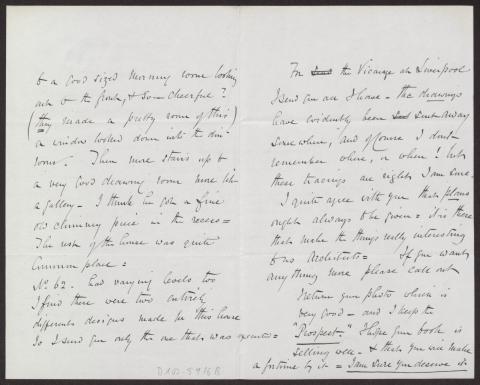 & a good sized Morning room looking
out to the front, & so — cheerful?
(they made a pretty room of this)
a window looked down into the
room. Then more stairs up to
a very good drawing room more like
a gallery — I think he got a fine
old chimney piece in the recess =
The rest of the house was quite
Common place =
No 62. had varying levels too
I find there were two entirely
different designs made for this house
So I send you only the one that was executed =
D102-5916B
For the Vicarage at Liverpool
I send you all I have — the drawings
have evidently been sent away
somewhere, and of course I don't
remember where, or when! but
these tracings are right I am sure.
I quite agree with you that plans
ought always to be given = it is these
that make the things really interesting
to us Architects = If you want
anything more please call out
I return your photo which is
very good — and I keep the
"Prospect." I hope your book is
selling well — & that you will make
a fortune by it = I am sure you deserve it